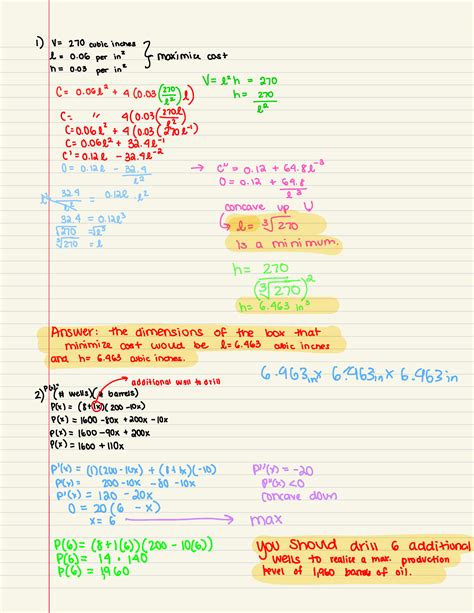 1) V= 270 cubic inches
l = 0.06 per in²
h = 0.03 per in²
} maximize cost
V = l²h = 270
h = 270/l²
C = 0.06l² + 4(0.03(270/l²)l)
C = " 4(0.03(270/l²)l)
C = 0.06l² + 4(0.03(270l⁻¹)
C = 0.06l² + 32.4l⁻¹
C' = 0.12l - 32.4l⁻²
0 = 0.12l - 32.4/l²
→ C'' = 0.12 + 64.8l⁻³
0 = 0.12 + 64.8/l³
concave up U
l² 32.4/l² = 0.12l · l²
32.4 = 0.12l³
∛270 = ∛l³
∛270 = l
→ l = ∛270
is a minimum.
h = 270/(∛270)²
h = 6.463 in³
Answer: the dimensions of the box that
minimize cost would be l = 6.463 cubic inches
and h = 6.463 cubic inches.
6.463in x 6.463in x 6.463in
additional well to drill
2) P(x)= (# wells)(# barrels)
P(x) = (8+1x)(200-10x)
P(x) = 1600-80x+200x-10x
P(x) = 1600-90x+200x
P(x) = 1600 + 110x
P'(x) = (1)(200-10x) + (8+1x)(-10)
P'(x) = 200-10x -80-10x
P'(x) = 120-20x
0 = 20(6-x)
x = 6 → max
P''(x) = -20
P''(x) < 0
concave down
P(6) = (8+1(6))(200-10(6))
P(6) = 14 · 140
P(6) = 1960
you should drill 6 additional
wells to realize a max. production
level of 1,960 barrels of oil.